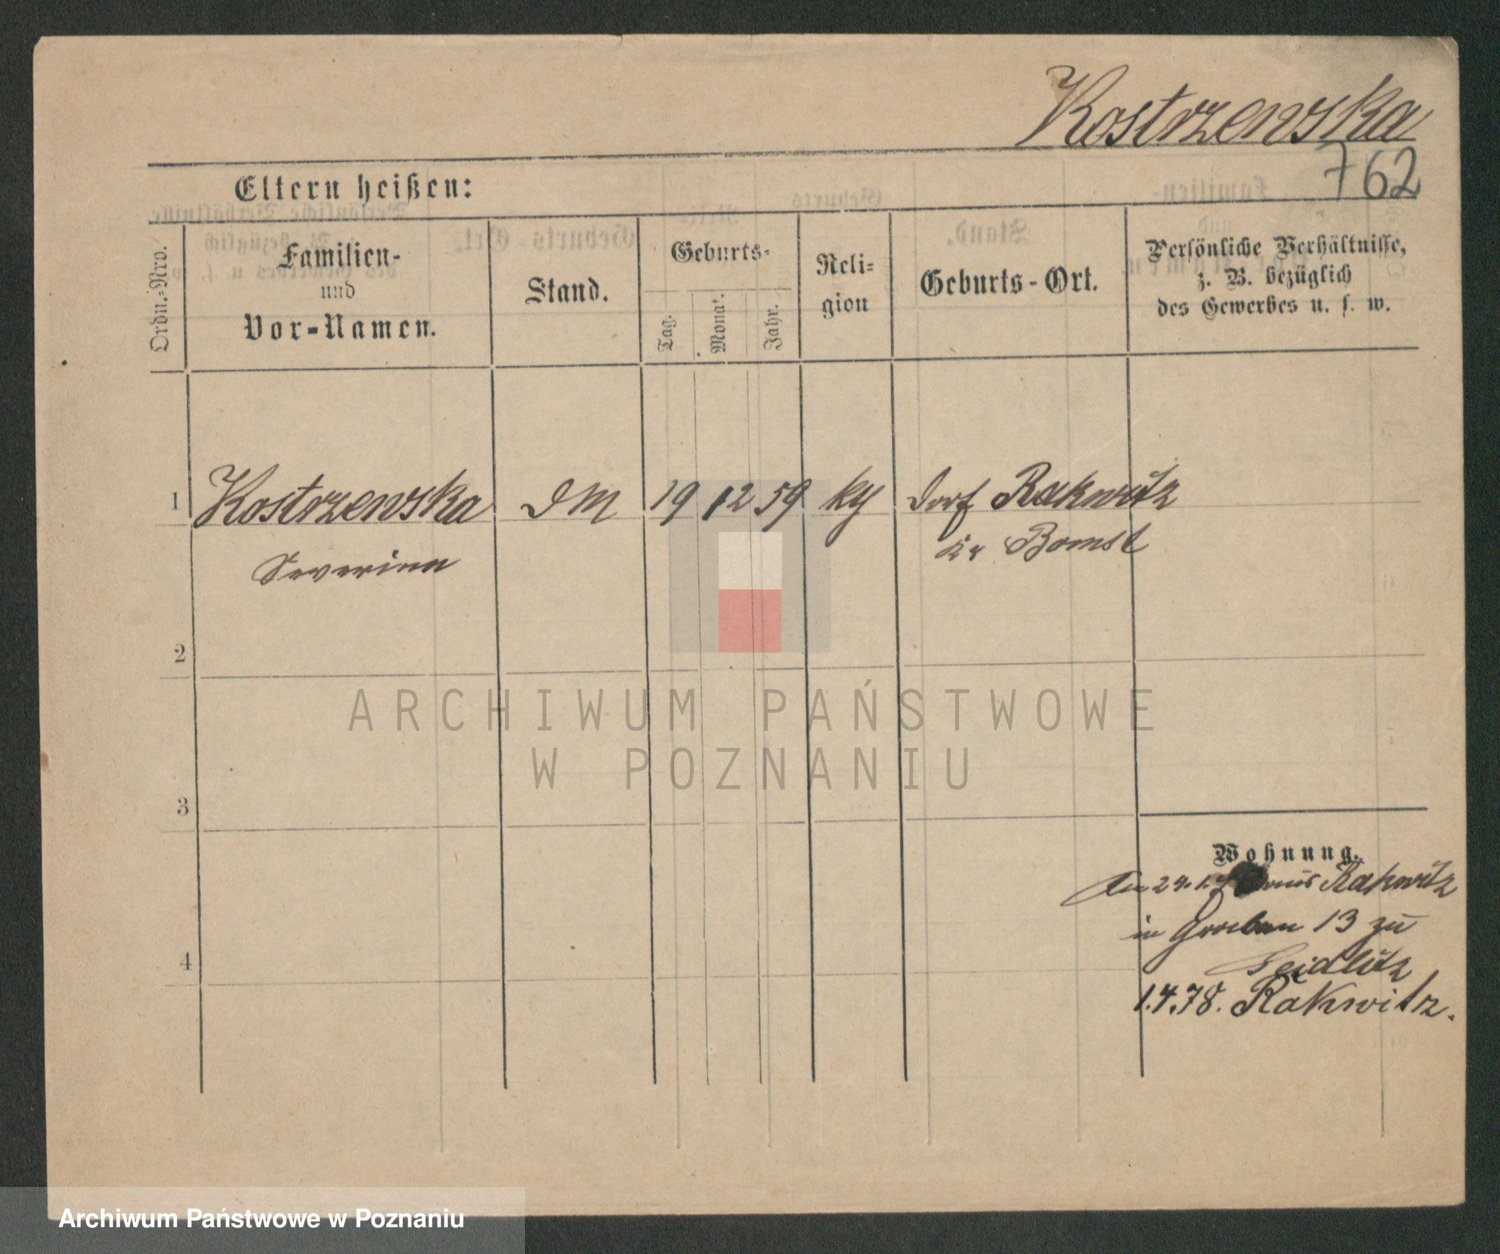 Kostrzewska
762
Eltern heißen:
Ordn.-Nro.
Familien-
und
Vor-Namen.
Stand.
Geburts-
Tag.
Monat.
Jahr.
Reli-
gion
Geburts-Ort.
Persönliche Verhältnisse,
z. B. bezüglich
des Gewerbes u. s. w.
1 Kostrzewska DM 19 12 59 kth Dorf Rakwitz
Severina Kr Bomst
2
3
4
Wohnung.
aus Rakwitz
in Graben 13 zu
Seidlitz
1.4.78. Rakwitz.
ARCHIWUM PAŃSTWOWE
W POZNANIU
Archiwum Państwowe w Poznaniu